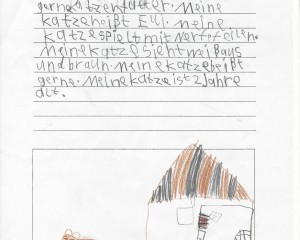 gerne Katzenfutter. Meine
katze heißt Elli. Meine
katze spielt mit Nerf-feilen.
Meine katze sieht weiß aus
und braun. Meine katze beißt
gerne. Meine katze ist 2 Jahre
alt.